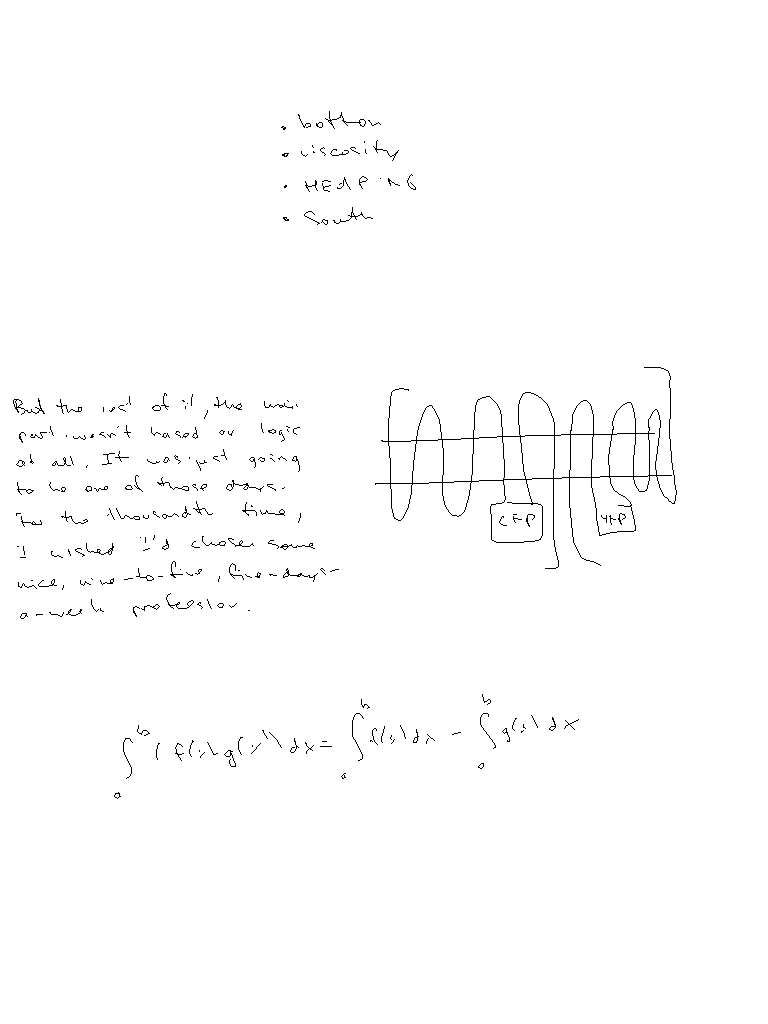 • bottom
• viscosity
• HEDPING
• South
But the rest of it, the main
part wasn't based on logic
at all. It was just going
to be one of those days.
For the thousandth time,
I wished I'd chosen some
nice, nine-to-five, five-days-
a-week profession.
CFP YFP
∫_a^b (f(x) g(x)) dx = ∫_a^b f(x) dx - ∫_a^b g(x) dx